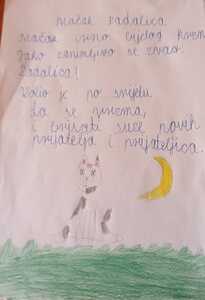 Mačak Badalica
Mačak crno bijelog krzna
Jako zanimljivo se zvao.
Badalica!
Volio je po svijetu
da se
i puno novih
prijatelja i prijateljica.